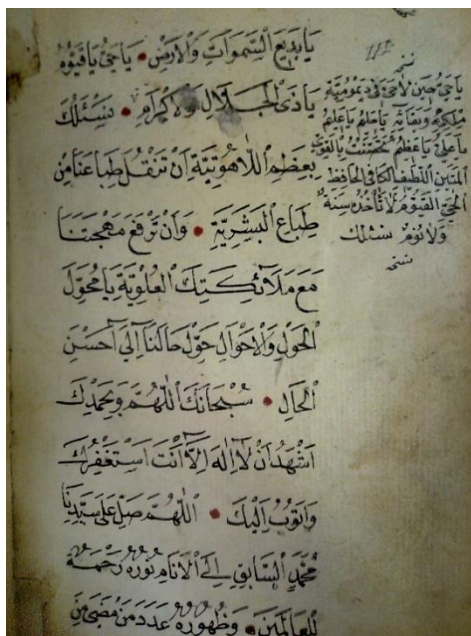 يَا بَدِيعَ السَّمَوَاتِ وَالْاَرْضِ • يَا حَىُّ يَا قَيُّومُ
يَا ذَىالْجَلَالِ وَالْاِكْرَامِ • نَسْئَلُكَ
بِعِظَمِ اللَّاهُوتِيَّةِ اَنْ تَنْقُلَ طِبَاعَنَا مِنْ
طِبَاعِ الْبَشَرِيَّةِ • وَاَنْ تَرْفَعَ مَهْجَتَنَا
مَعَ مَلَآئِكَتِكَ الْعُلْوِيَّةِ يَا مُحَوِّلَ
الْحَوْلِ وَالْاَحْوَالِ حَوِّلْ حَالَنَا اِلَى اَحْسَنِ
الْحَالِ • سُبْحَانَكَ اللّٰهُمَّ وَبِحَمْدِكَ
اَشْهَدُ اَنْ لَآ اِلَهَ اِلَّآ اَنْتَ اَسْتَغْفِرُكَ
وَاَتُوبُ اِلَيْكَ • اَللّٰهُمَّ صَلِّ عَلَى سَيِّدِنَا
مُحَمَّدٍ السَّابِقِ اِلَى الْاَنَامِ نُورُهُ وَرَحْمَةٌ
لِلْعَالَمِينَ • وَظُهُورُهُ عَدَدَ مَنْ مَضَى مِنْ
يَا حَىُّ حِينَ لَاحَىَّ فِى دَيْمُومِيَّةِ
مُلْكِهِ وَبَقَآئِهِ يَا حَلِيمُ يَا عَلِيمُ
يَا عَلِىُّ يَا عَظِيمُ تَحَصَّنْتُ بِالْقَوِىِّ
الْمَتِينِ اللَّطِيفِ الْكَافِى الْحَافِظِ
الْحَىِّ الْقَيُّومِ لَا تَأْخُذُهُ سِنَةٌ
وَلَا نَوْمٌ نسئلك